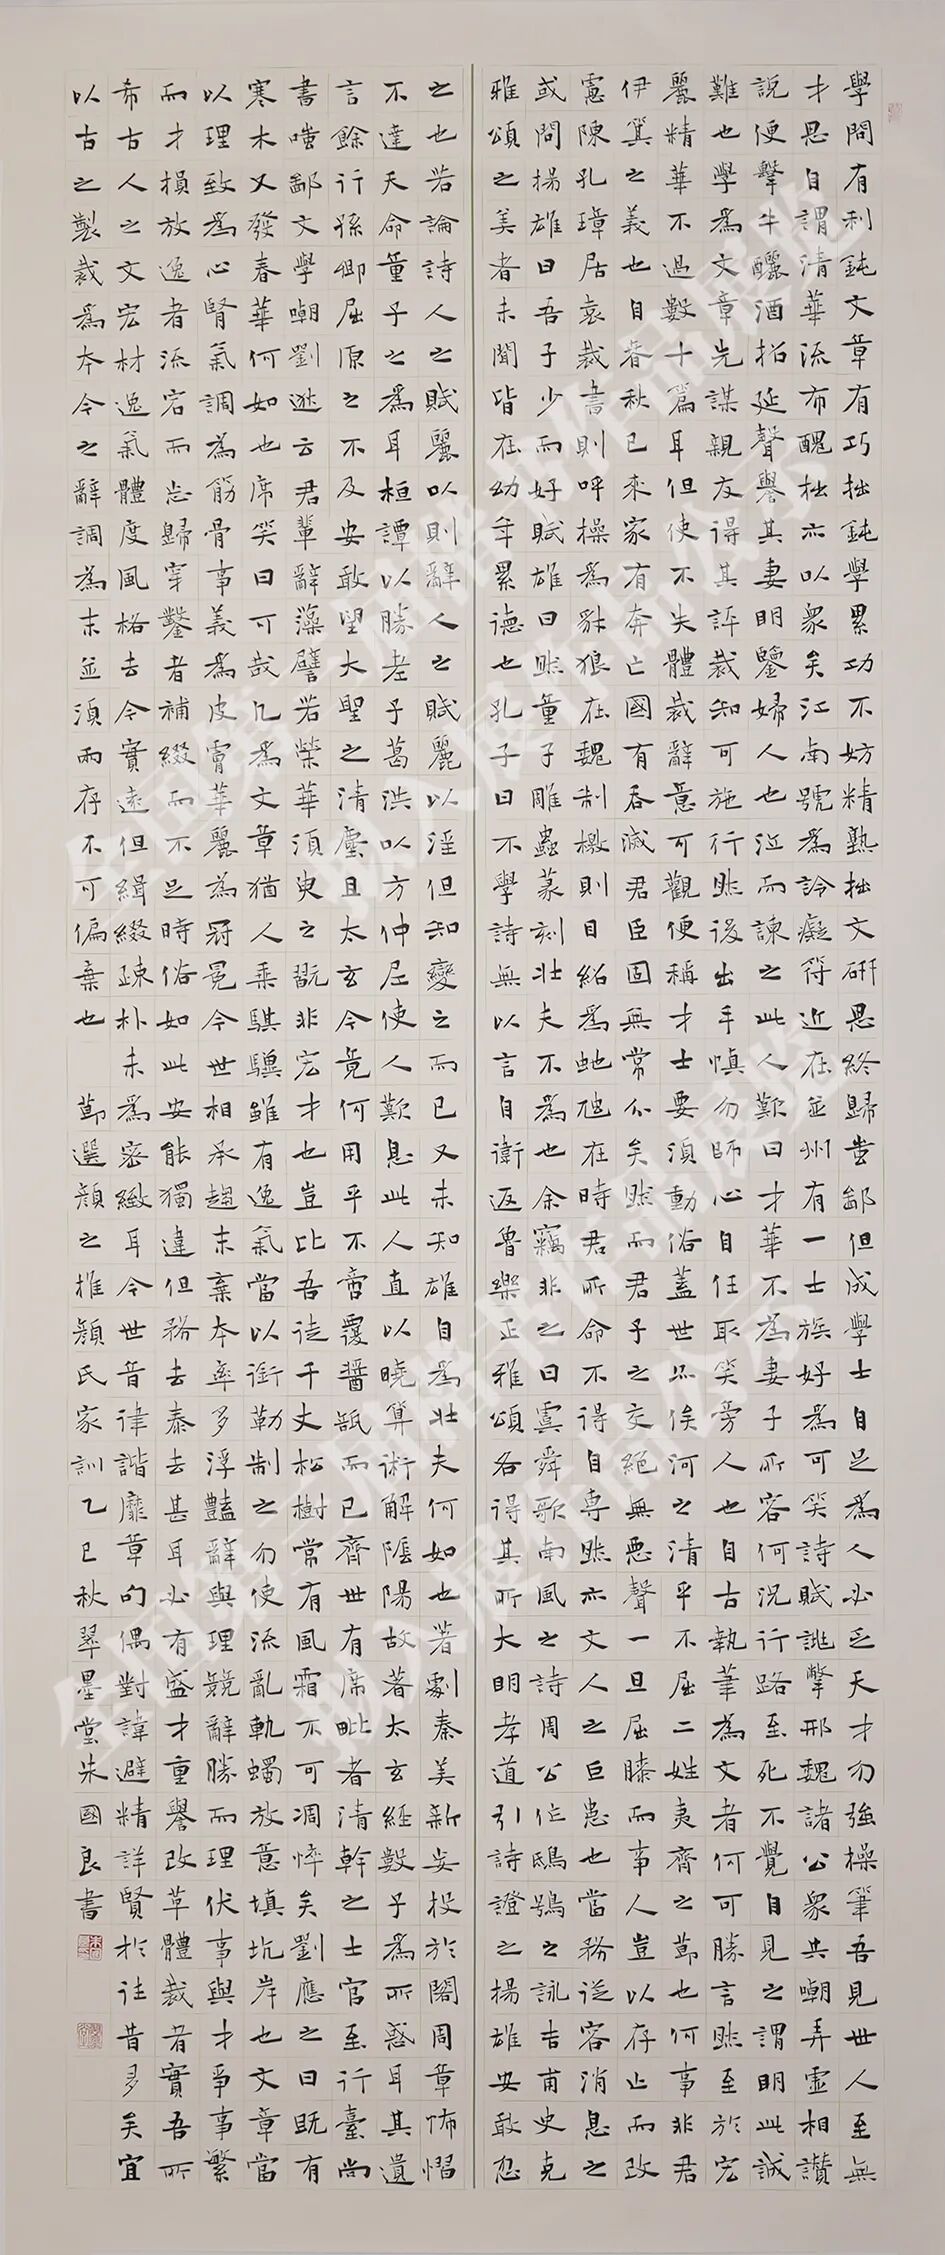 學問有利鈍文章有巧拙鈍學累功不妨精熟拙文研思終歸蚩鄙但成學士自足為人必乏天才勿強操筆吾見世人至無
才思自謂清華流布醜拙亦以眾矣江南號為詅癡符近在並州有一士族好為可笑詩賦誂擎邢魏諸公眾共嘲弄虛相讚
說便擊牛釃酒招延聲譽其妻明鑒婦人也泣而諫之此人歎曰才華不為妻子所容何況行路至死不覺自見之謂明此誠
難也學為文章先謀親友得其評裁知可施行然後出手慎勿師心自任取笑旁人也自古執筆為文者何可勝言然至於宏
麗精華不過數十篇耳但使不失體裁辭意可觀便稱才士要須動俗蓋世亦俟河之清乎不屈二姓夷齊之節也何事非君
伊箕之義也自春秋已來家有奔亡國有吞滅君臣固無常分矣然而君子之交絕無惡聲一旦屈膝而事人豈以存亡而改
慮陳孔璋居袁裁書則呼操為豺狼在魏制檄則目紹為虵虺在時君所命不得自專然亦文人之巨患也當務從容消息之
或問揚雄曰吾子少而好賦雄曰然童子雕蟲篆刻壯夫不為也余竊非之曰虞舜歌南風之詩周公作鴟鴞之詠吉甫史克
雅頌之美者未聞皆在幼年累德也孔子曰不學詩無以言自衛返魯樂正雅頌各得其所大明孝道引詩證之揚雄安敢忽
之也若論詩人之賦麗以則辭人之賦麗以淫但知變之而已又未知雄自為壯夫何如也著劇秦美新妄投於閣周章怖慴
不達天命童子之為耳桓譚以勝老子葛洪以方仲尼使人歎息此人直以曉算術解陰陽故著太玄經數子為所惑耳其遺
言餘行孫卿屈原之不及安敢望大聖之清塵且太玄今竟何用乎不啻覆醬瓿而已齊世有席毗者清幹之士官至行臺尚
書嗤鄙文學嘲劉逖云君輩辭藻譬若榮華須臾之翫非宏才也豈比吾徒千丈松樹常有風霜不可凋悴矣劉應之曰既有
寒木又發春華何如也席笑曰可哉凡為文章猶人乘騏驥雖有逸氣當以銜勒制之勿使流亂軌躅放意填坑岸也文章當
以理致為心腎氣調為筋骨事義為皮膚華麗為冠冕今世相承趨末棄本率多浮豔辭與理競辭勝而理伏事與才爭事繁
而才損放逸者流宕而忘歸穿鑿者補綴而不足時俗如此安能獨違但務去泰去甚耳必有盛才重譽改革體裁者實吾所
希古人之文宏材逸氣體度風格去今實遠但緝綴疎朴未為密緻耳今世音律諧靡章句偶對諱避精詳賢於往昔多矣宜
以古之製裁為本今之辭調為末並須兩存不可偏棄也 節選顏之推顏氏家訓乙巳秋翠墨堂朱國良書